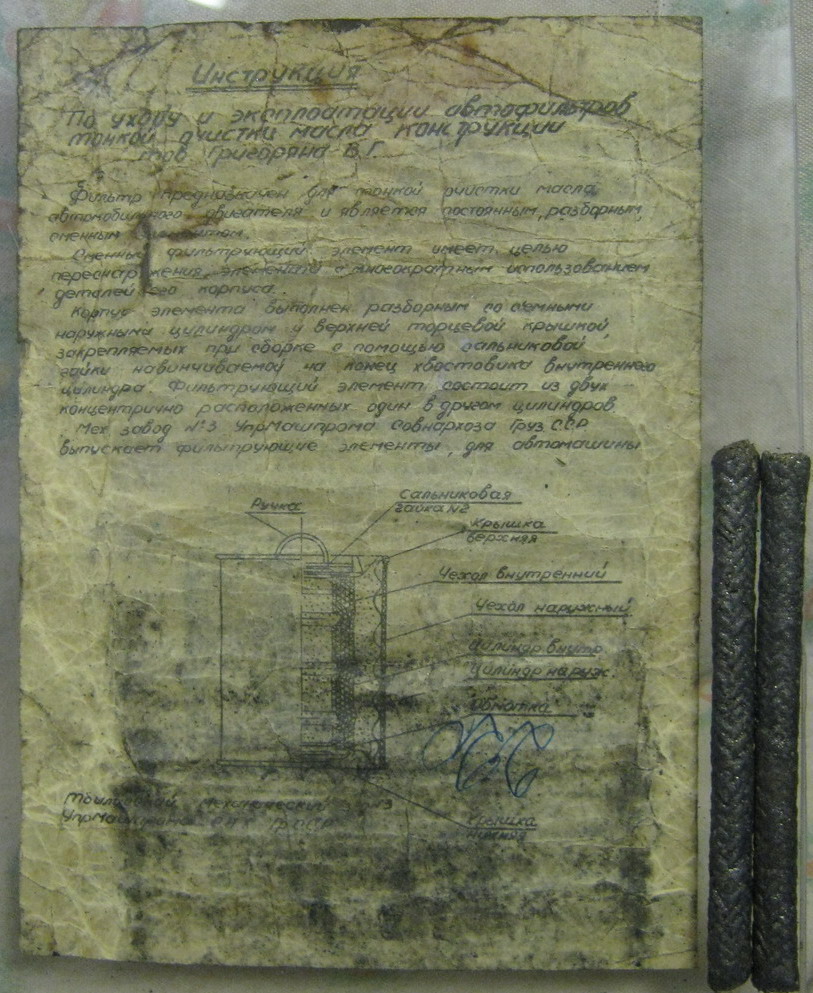 Инструкция
По уходу и эксплоатации автофильтров
тонкой очистки масла конструкции
тов Григоряна В.Г.
Фильтр предназначен для тонкой очистки масла
автомобильного двигателя и является постоянным, разборным,
сменным элементом.
Сменный фильтрующий элемент имеет целью
переснаряжения элемента с многократным использованием
деталей его корпуса.
Корпус элемента выполнен разборным со съемными
наружным цилиндром и верхней торцевой крышкой,
закрепляемых при сборке с помощью сальниковой
гайки навинчиваемой на конец хвостовика внутреннего
цилиндра. Фильтрующий элемент состоит из двух
концентрично расположенных один в другом цилиндров.
Мех завод №3 УпрМашпрома Совнархоза Груз ССР
выпускает фильтрующие элементы, для автомашины
Ручка
Сальниковая
гайка №2
Крышка
верхняя
Чехол внутренний
Чехол наружный
Цилиндр внутр.
Цилиндр наруж.
Обмотка
Тбилисский механический №3
УпрМашпрома СНХ Гр ССР
Крышка
нижняя